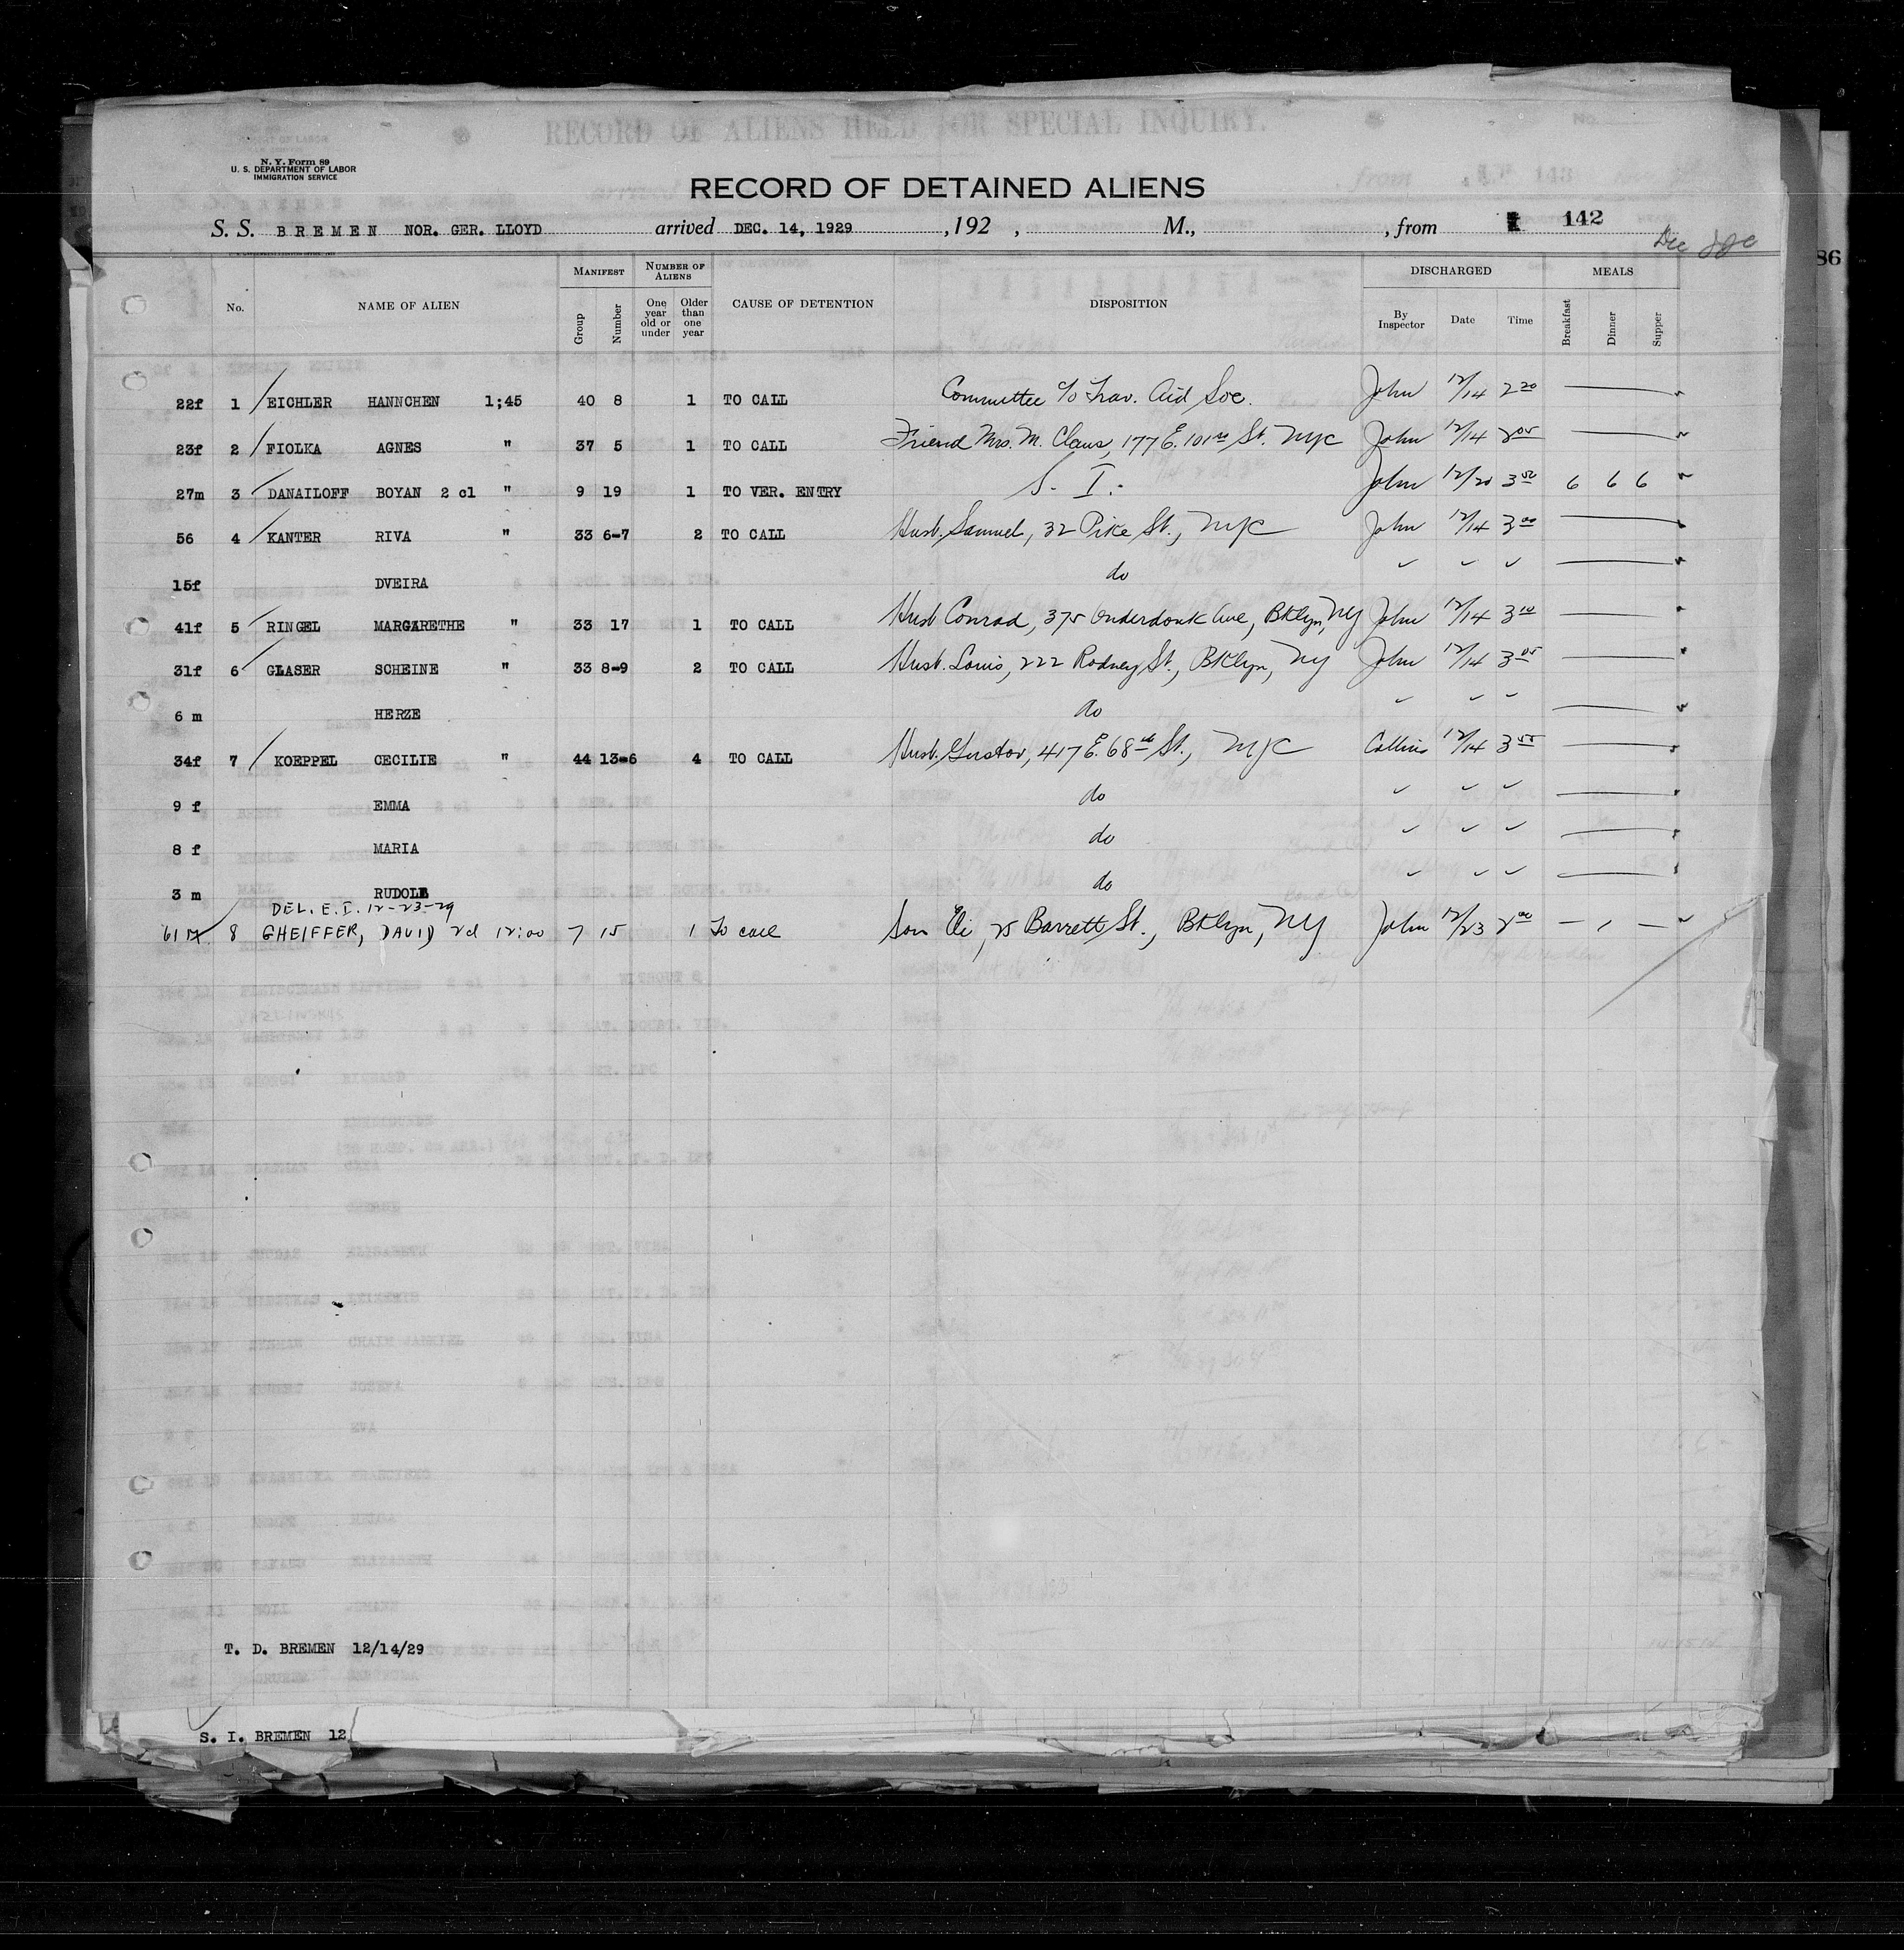 RECORD OF ALIENS HELD FOR SPECIAL INQUIRY.
N. Y. Form 89
U. S. DEPARTMENT OF LABOR
IMMIGRATION SERVICE
RECORD OF DETAINED ALIENS
S. S. BREMEN NOR. GER. LLOYD arrived DEC. 14, 1929 , 192 , M., , from 142
86
No. NAME OF ALIEN MANIFEST Group Number NUMBER OF ALIENS One year old or under Older than one year CAUSE OF DETENTION DISPOSITION DISCHARGED By Inspector Date Time MEALS Breakfast Dinner Supper
22f 1 / EICHLER HANNCHEN 1;45 40 8 1 TO CALL Committee c/o Trav. Aid Soc. John 12/14 2 20
23f 2 / FIOLKA AGNES " 37 5 1 TO CALL Friend Mrs. M. Claus, 177 E. 101 St. NYC John 12/14 2 05
27m 3 / DANAILOFF BOYAN 2 cl " 9 19 1 TO VER. ENTRY S. I. John 12/20 3 50 6 6 6
56 4 / KANTER RIVA " 33 6-7 2 TO CALL Husb. Samuel, 32 Pike St., NYC John 12/14 3 00
15f DVEIRA do ✓ ✓ ✓
41f 5 / RINGEL MARGARETHE " 33 17 1 TO CALL Husb Conrad, 375 Onderdonk Ave, Bklyn, NY John 12/14 3 10
31f 6 / GLASER SCHEINE " 33 8-9 2 TO CALL Husb. Louis, 222 Rodney St., Bklyn, NY John 12/14 3 05
6 m HERZE do ✓ ✓ ✓
34f 7 / KOEPPEL CECILIE " 44 13-6 4 TO CALL Husb. Gustav, 417 E. 68th St., NYC Collins 12/14 3 55
9 f EMMA do ✓ ✓ ✓
8 f MARIA do ✓ ✓ ✓
3 m RUDOLL do ✓ ✓ ✓
DEL. E. I. 12-23-29
61 M. 8 GHEIFFER, DAVID 2cl 12:00 7 15 1 To call Son Eli, 25 Barrett St., Bklyn, NY John 12/23 2 00 — 1 —
T. D. BREMEN 12/14/29
S. I. BREMEN 12